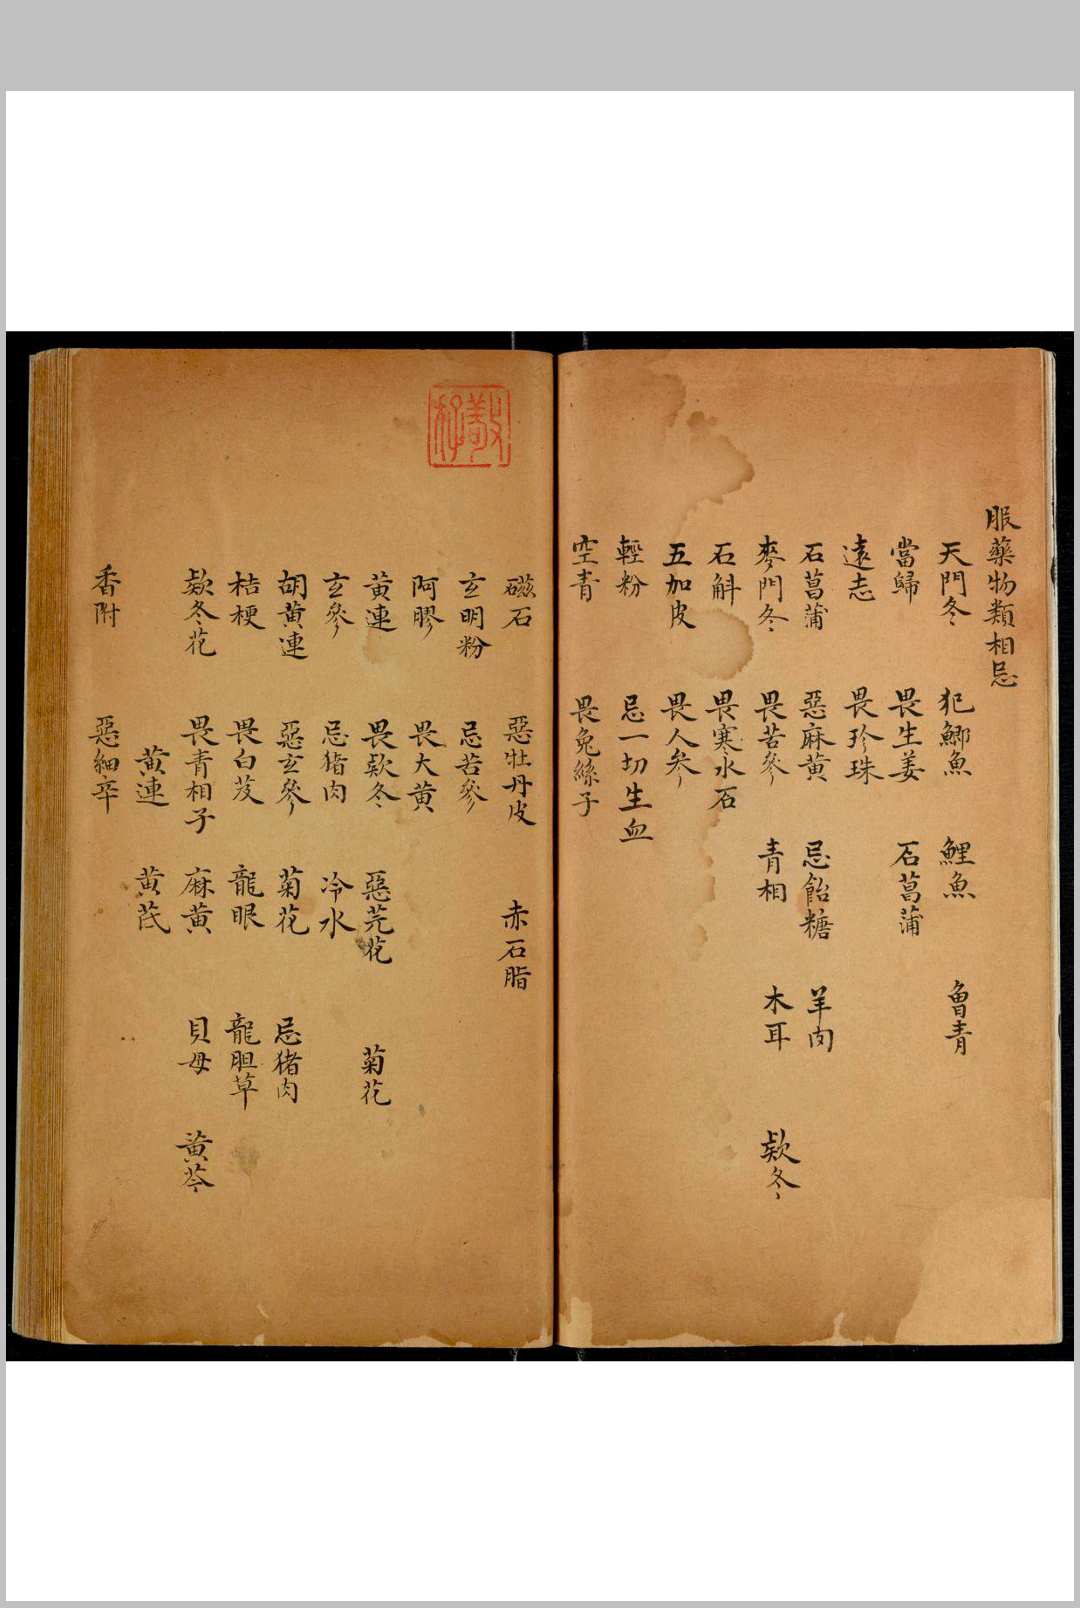 服藥物類相忌
天門冬 犯鯽魚 鯉魚 魯青
當歸 畏生姜 石菖蒲
遠志 畏珍珠
石菖蒲 惡麻黃 忌飴糖 羊肉
麥門冬 畏苦參 青相 木耳 欵冬
石斛 畏寒水石
五加皮 畏人參
輕粉 忌一切生血
空青 畏兔絲子
磁石 惡牡丹皮 赤石脂
玄明粉 忌苦參
阿膠 畏大黃
黃連 畏欵冬 惡芫花 菊花
玄參 忌猪肉 冷水
胡黃連 惡玄參 菊花 忌猪肉
桔梗 畏白芨 龍眼 龍胆草
欵冬花 畏青相子 麻黃 貝母 黃芩
黃連 黃芪
香附 惡細辛